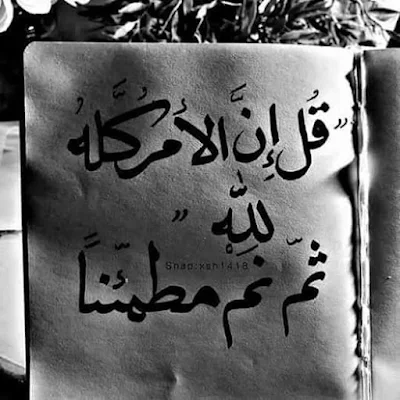 ”قُل إِنَّ الأمرَ كلَّهُ
لِلَّهِ “
Snap:xsh1418
ثمّ نم مطمئناً